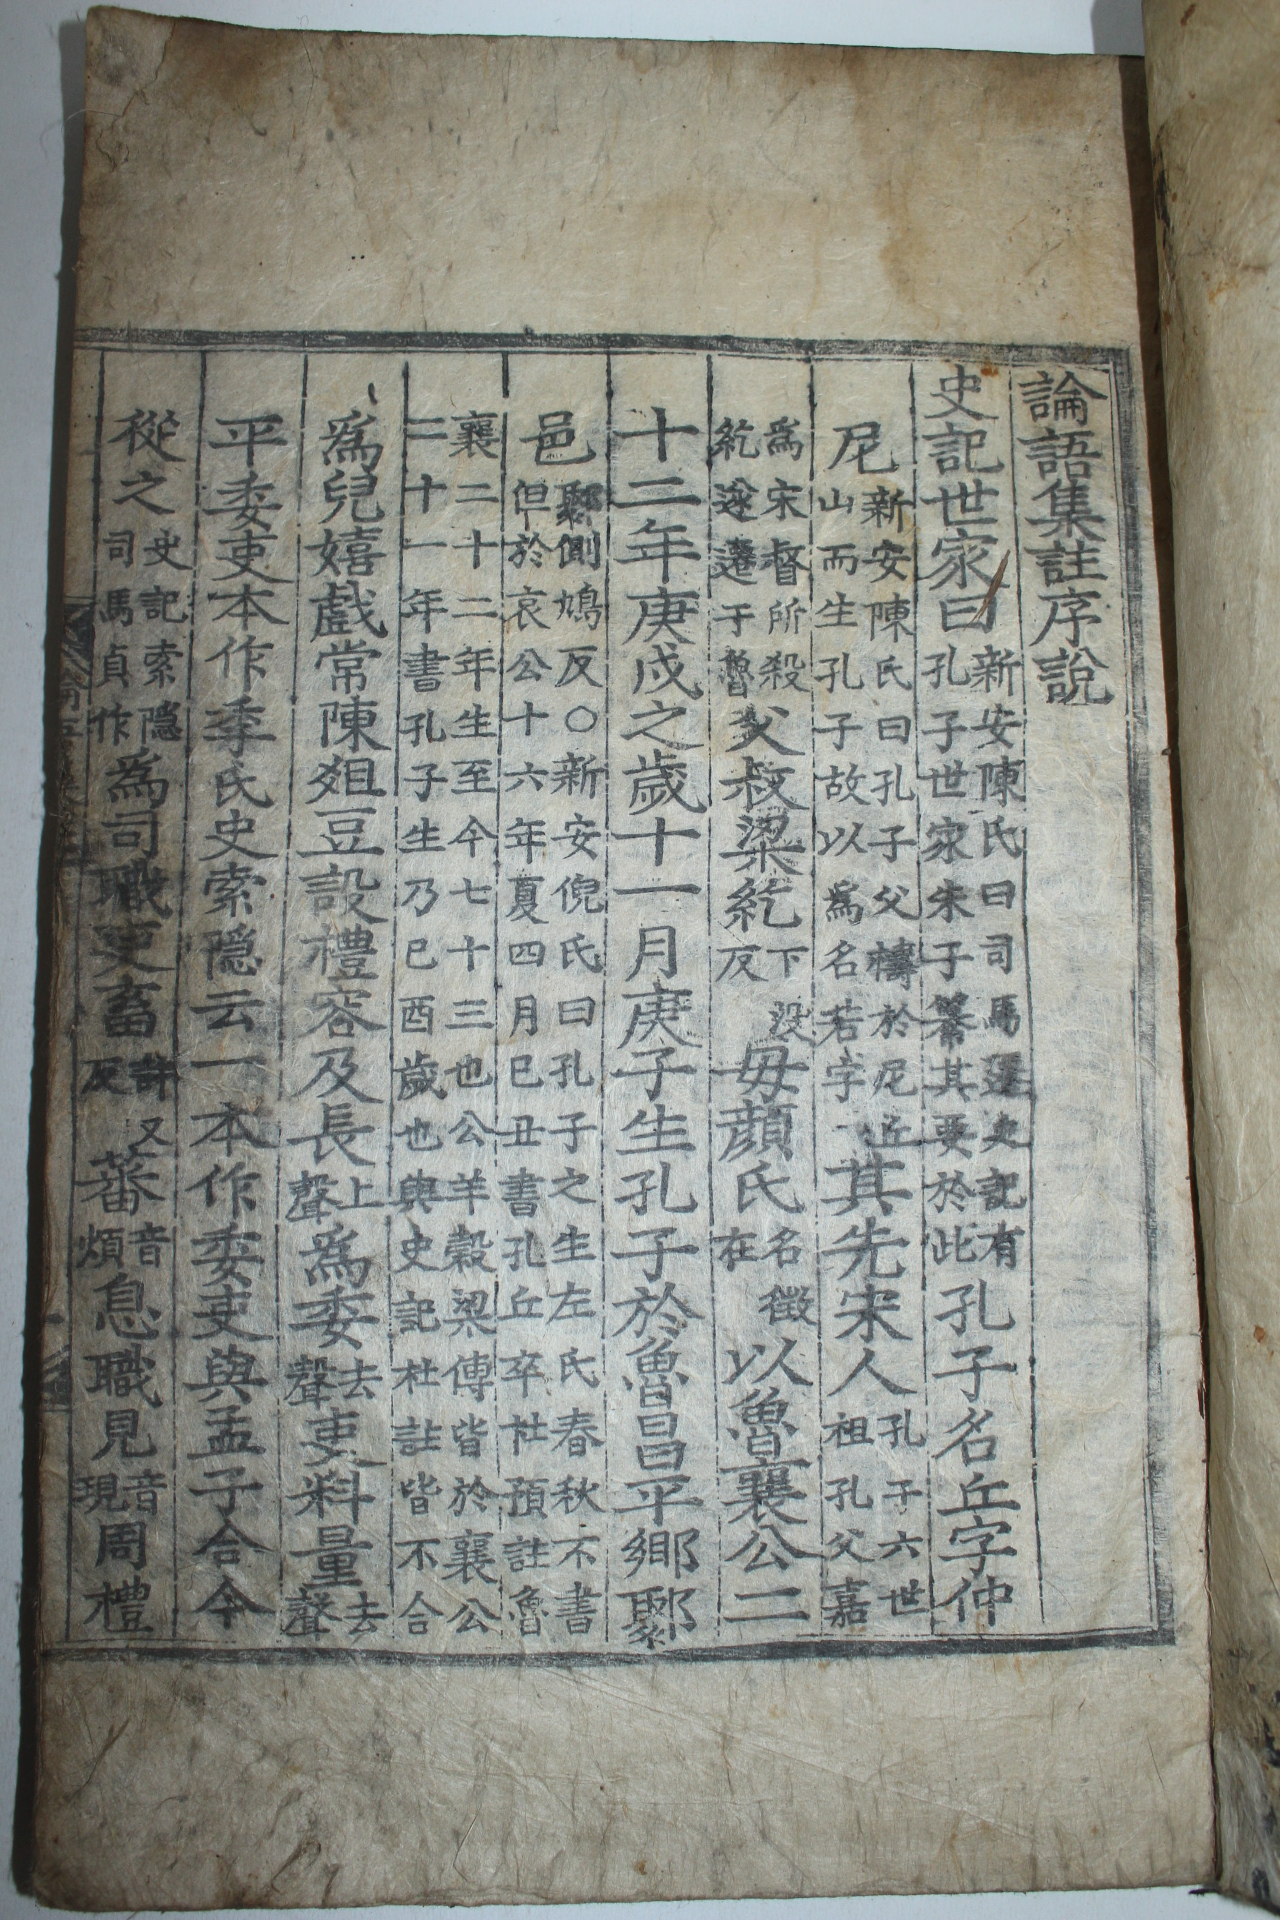 論語集註序說
史記世家曰新安陳氏曰司馬遷史記有孔子世家朱子纂其要於此孔子名丘字仲
尼新安陳氏曰孔子父禱於尼丘山而生孔子故以爲名若字其先宋人孔子六世祖孔父嘉
爲宋督所殺紇遂遷于魯父叔梁紇下没反母顏氏名徵在以魯襄公二
十二年庚戌之歲十一月庚子生孔子於魯昌平鄉鄹
邑鄹側鳩反○新安倪氏曰孔子之生左氏春秋不書但於哀公十六年夏四月巳丑書孔丘卒杜預註魯
襄二十二年生至今七十三也公羊穀梁傳皆於襄公二十一年書孔子生乃巳酉歲也與史記杜註皆不合
爲兒嬉戲常陳俎豆設禮容及長上聲爲委去聲吏料量去聲
平委吏本作季氏史索隱云一本作委吏與孟子合今
從之史記索隱司馬貞作爲司職吏畜許又反蕃音煩息職見音現周禮